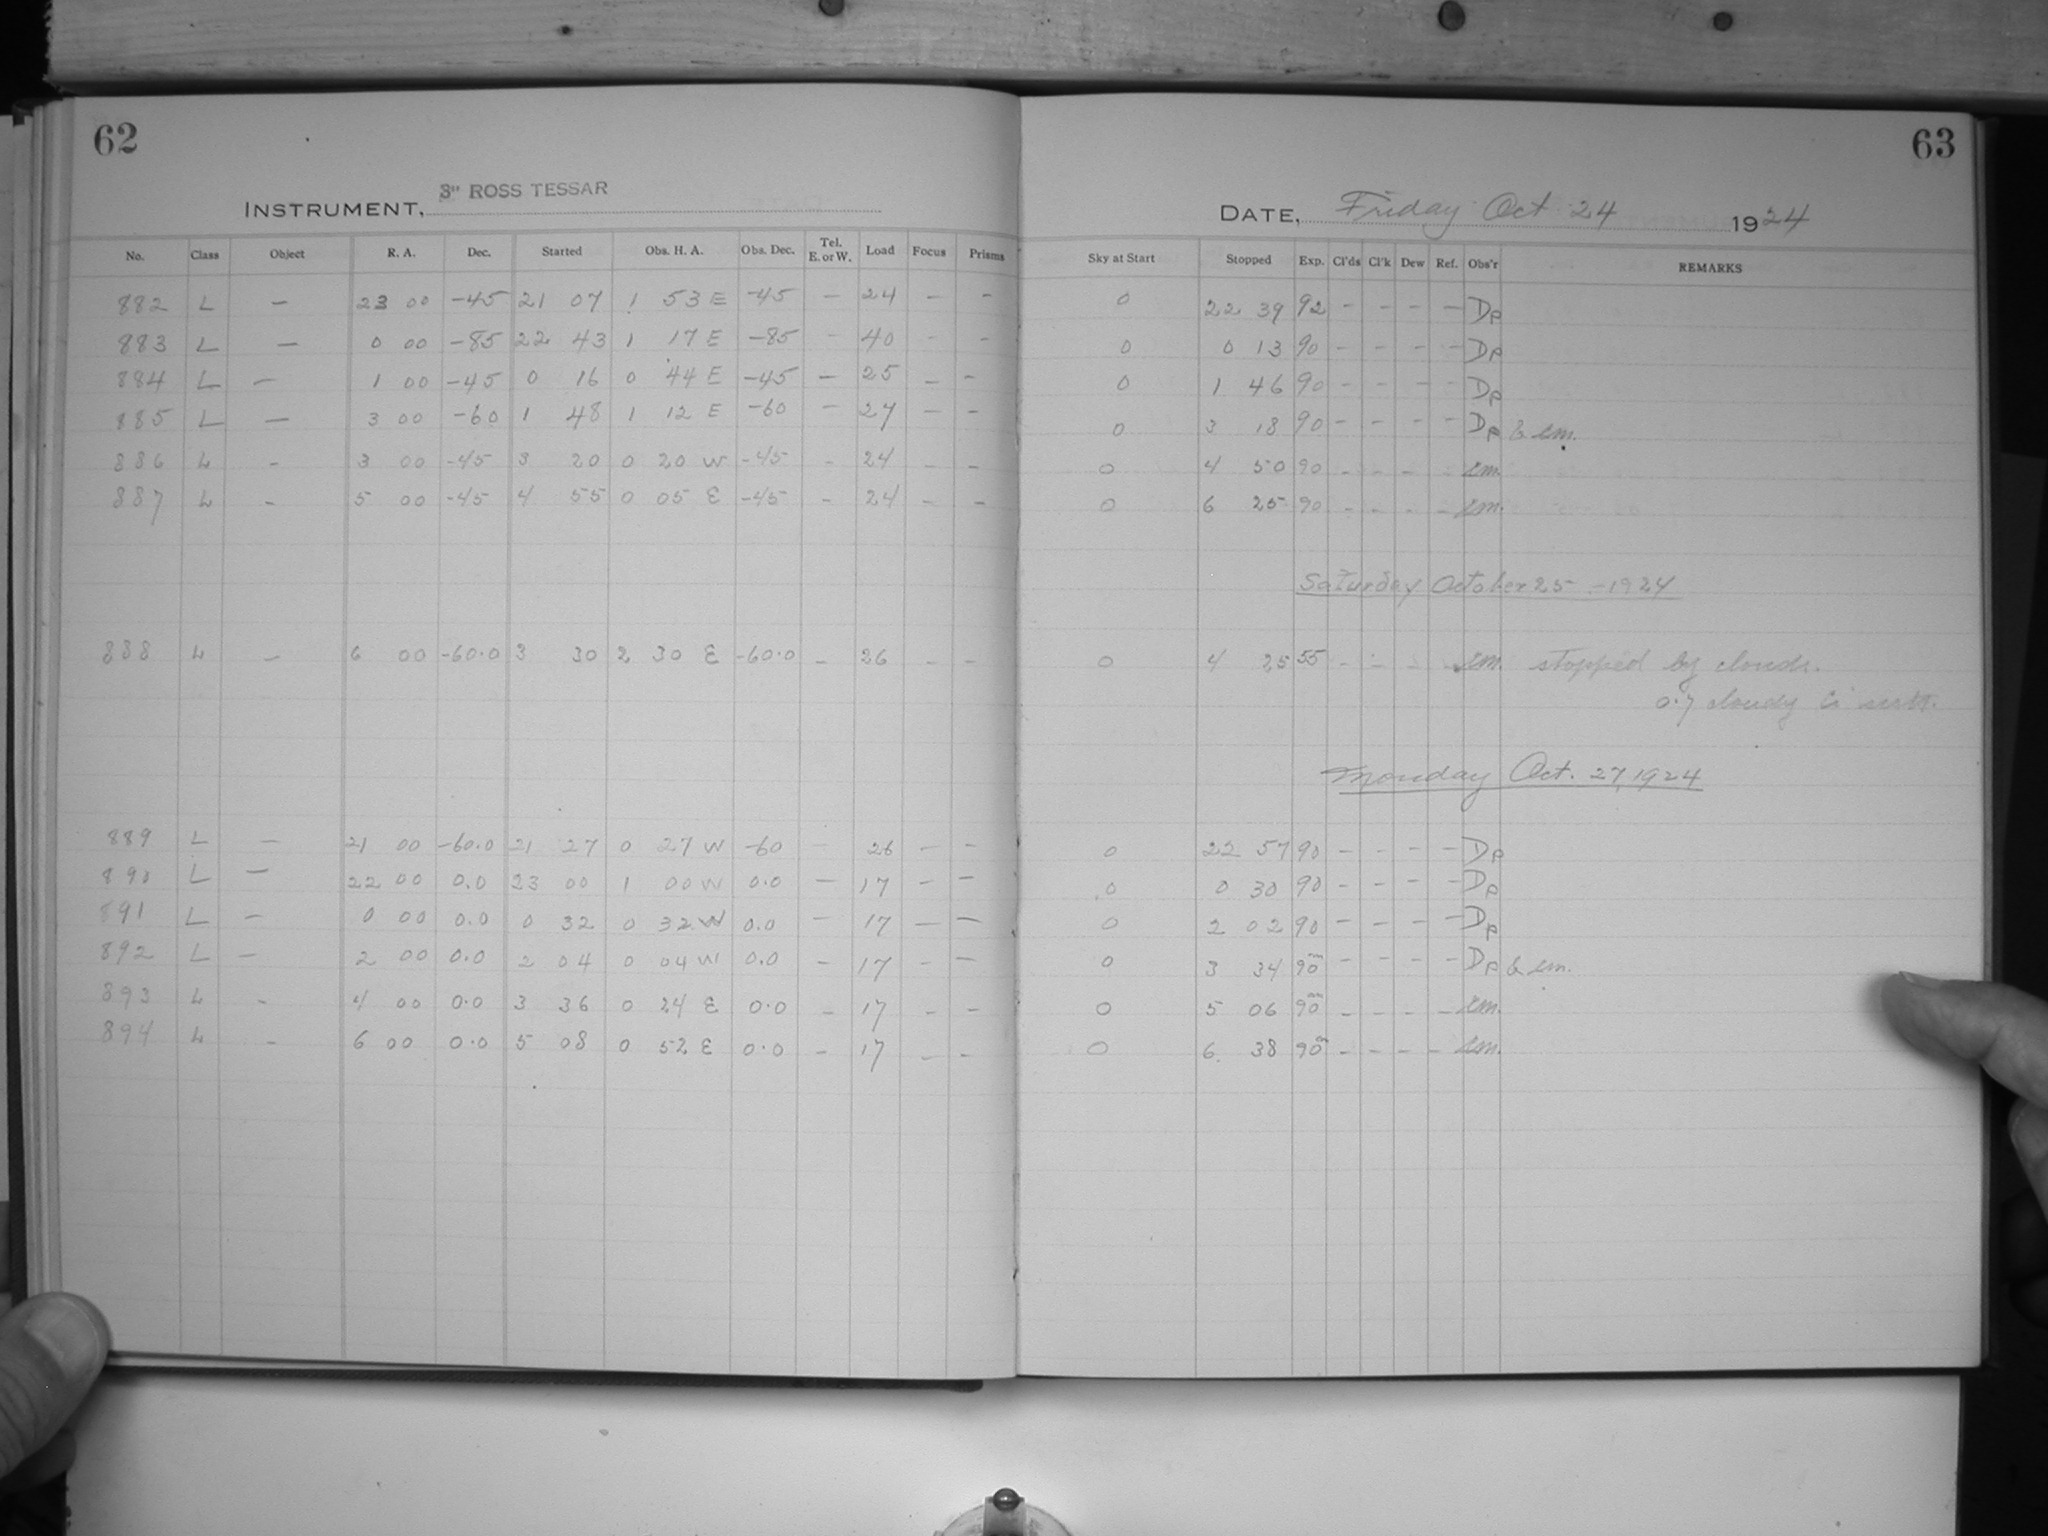 62
INSTRUMENT, 3" ROSS TESSAR
No. Class Object R. A. Dec. Started Obs. H. A. Obs. Dec. Tel. E. or W. Load Focus Prisms
882 L — 23 00 -45 21 07 1 53 E -45 — 24 — —
883 L — 0 00 -85 22 43 1 17 E -85 — 40 — —
884 L — 1 00 -45 0 16 0 44 E -45 — 25 — —
885 L — 3 00 -60 1 48 1 12 E -60 — 27 — —
886 L — 3 00 -45 3 20 0 20 W -45 — 24 — —
887 L — 5 00 -45 4 55 0 05 E -45 — 24 — —
888 L — 6 00 -60.0 3 30 2 30 E -60.0 — 26 — —
889 L — 21 00 -60.0 21 27 0 27 W -60 — 26 — —
890 L — 22 00 0.0 23 00 1 00 W 0.0 — 17 — —
891 L — 0 00 0.0 0 32 0 32 W 0.0 — 17 — —
892 L — 2 00 0.0 2 04 0 04 W 0.0 — 17 — —
893 L — 4 00 0.0 3 36 0 24 E 0.0 — 17 — —
894 L — 6 00 0.0 5 08 0 52 E 0.0 — 17 — —
63
DATE, Friday Oct 24 1924
Sky at Start Stopped Exp. Cl'ds Cl'k Dew Ref. Obs'r REMARKS
0 22 39 92 — — — — Dp
0 0 13 90 — — — — Dp
0 1 46 90 — — — — Dp
0 3 18 90 — — — — Dp & em.
0 4 50 90 — — — — em.
0 6 25 90 — — — — em.
Saturday October 25 - 1924
0 4 25 55 — — — — em. stopped by clouds.
0.7 cloudy
Monday Oct. 27, 1924
0 22 57 90 — — — — Dp
0 0 30 90 — — — — Dp
0 2 02 90 — — — — Dp
0 3 34 90m — — — — Dp & em.
0 5 06 90m — — — — em.
0 6 38 90m — — — — em.